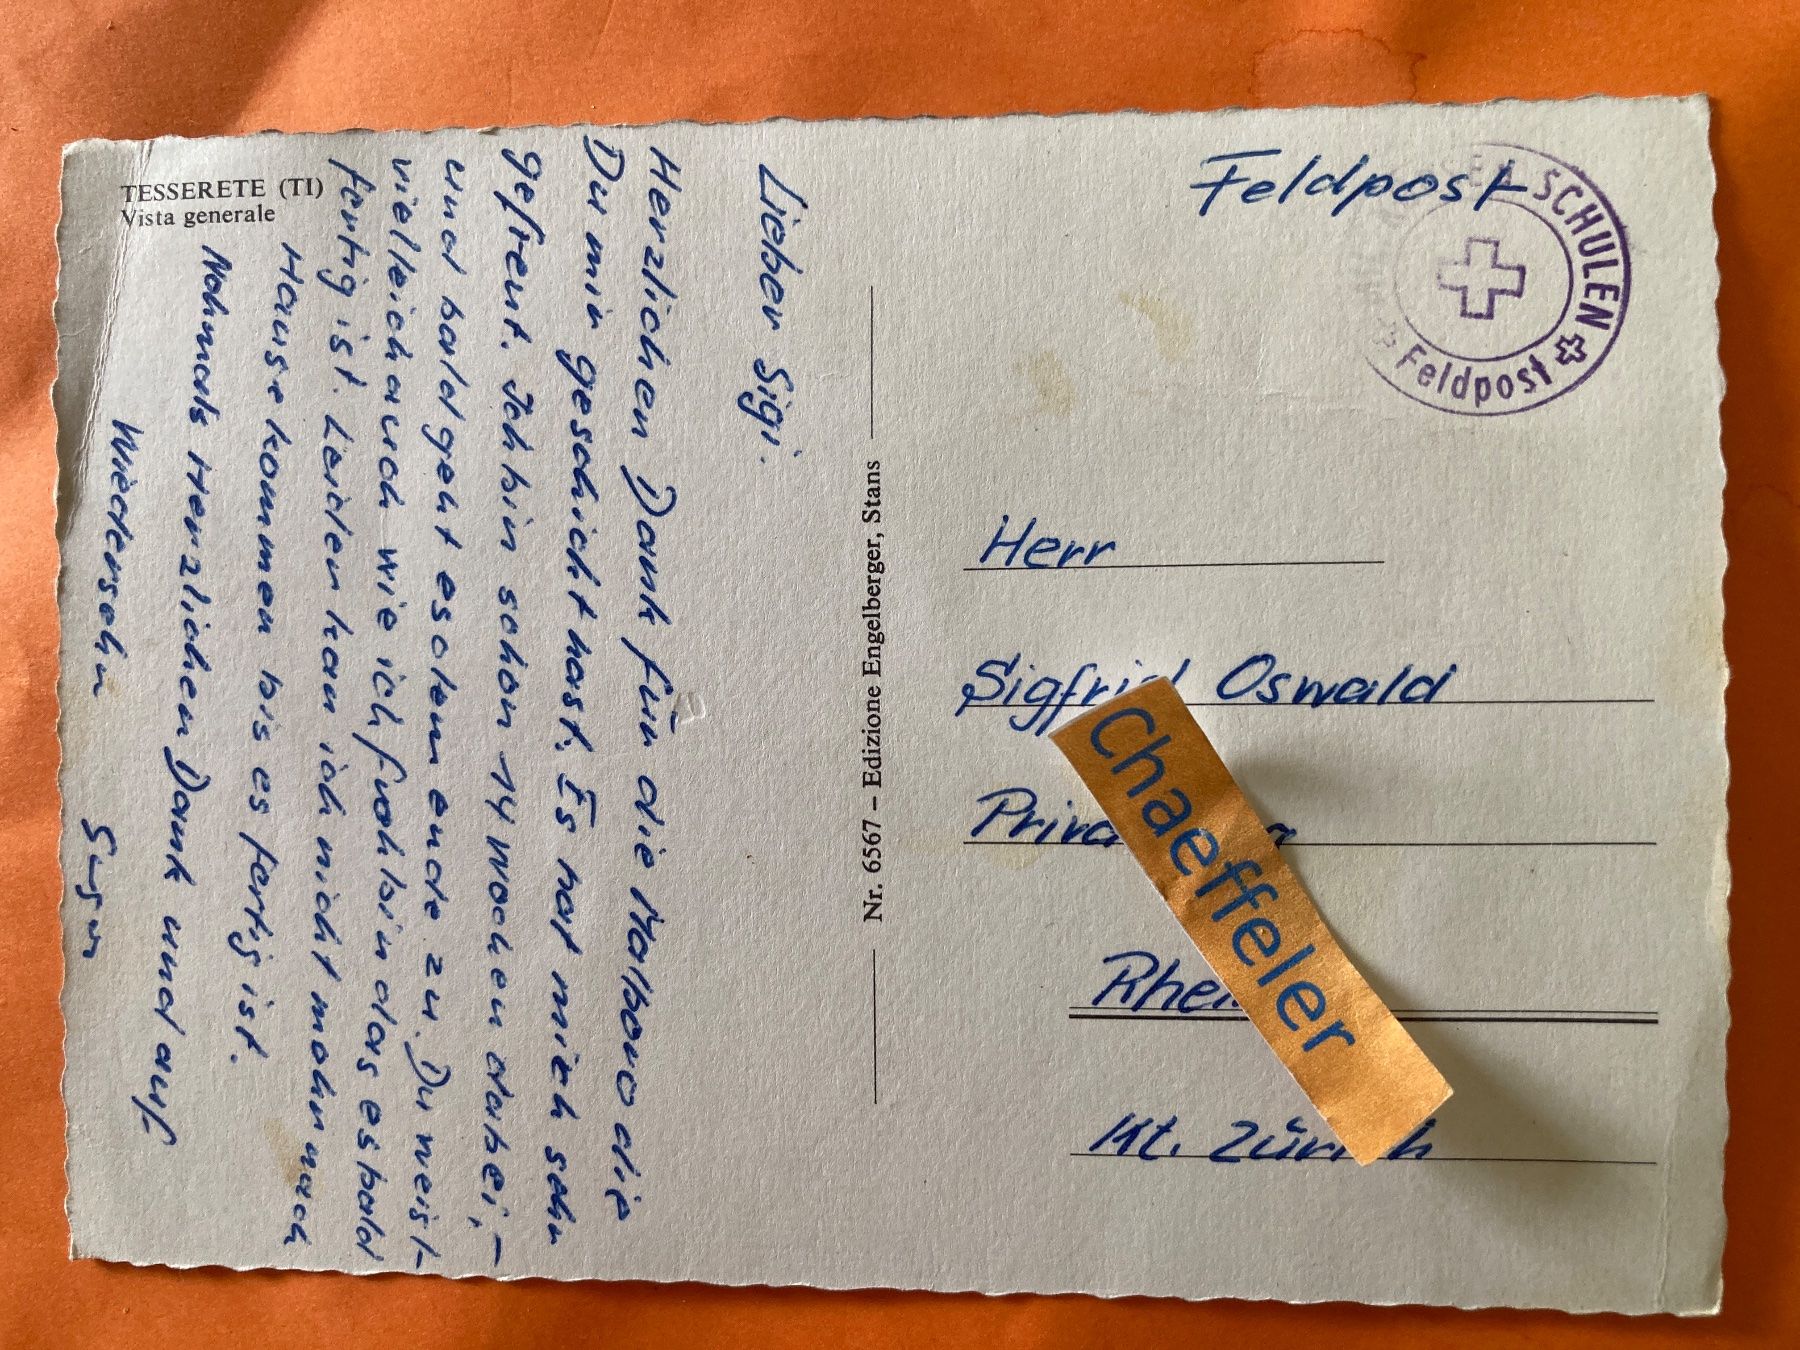 TESSERETE (TI)
Vista generale
Lieber Sigi.
Herzlichen Dank für die Malboro die
Du mir geschickt hast. Es hat mich sehr
gefreut. Ich bin schon 14 wochen dabei,-
und bald geht es dem ende zu. Du weist
vielleich auch wie ich froh bin das es bald
fertig ist. Leider kan ich nicht mehr nach
Hause kommen bis es fertig ist.
Nohmals Herzlichen Dank und auf
Wiedersehn
Nr. 6567 – Edizione Engelberger, Stans
Feldpost
SCHULEN
Feldpost
Herr
Sigfrid Oswald
Chaeffeler
Kt. Zürich